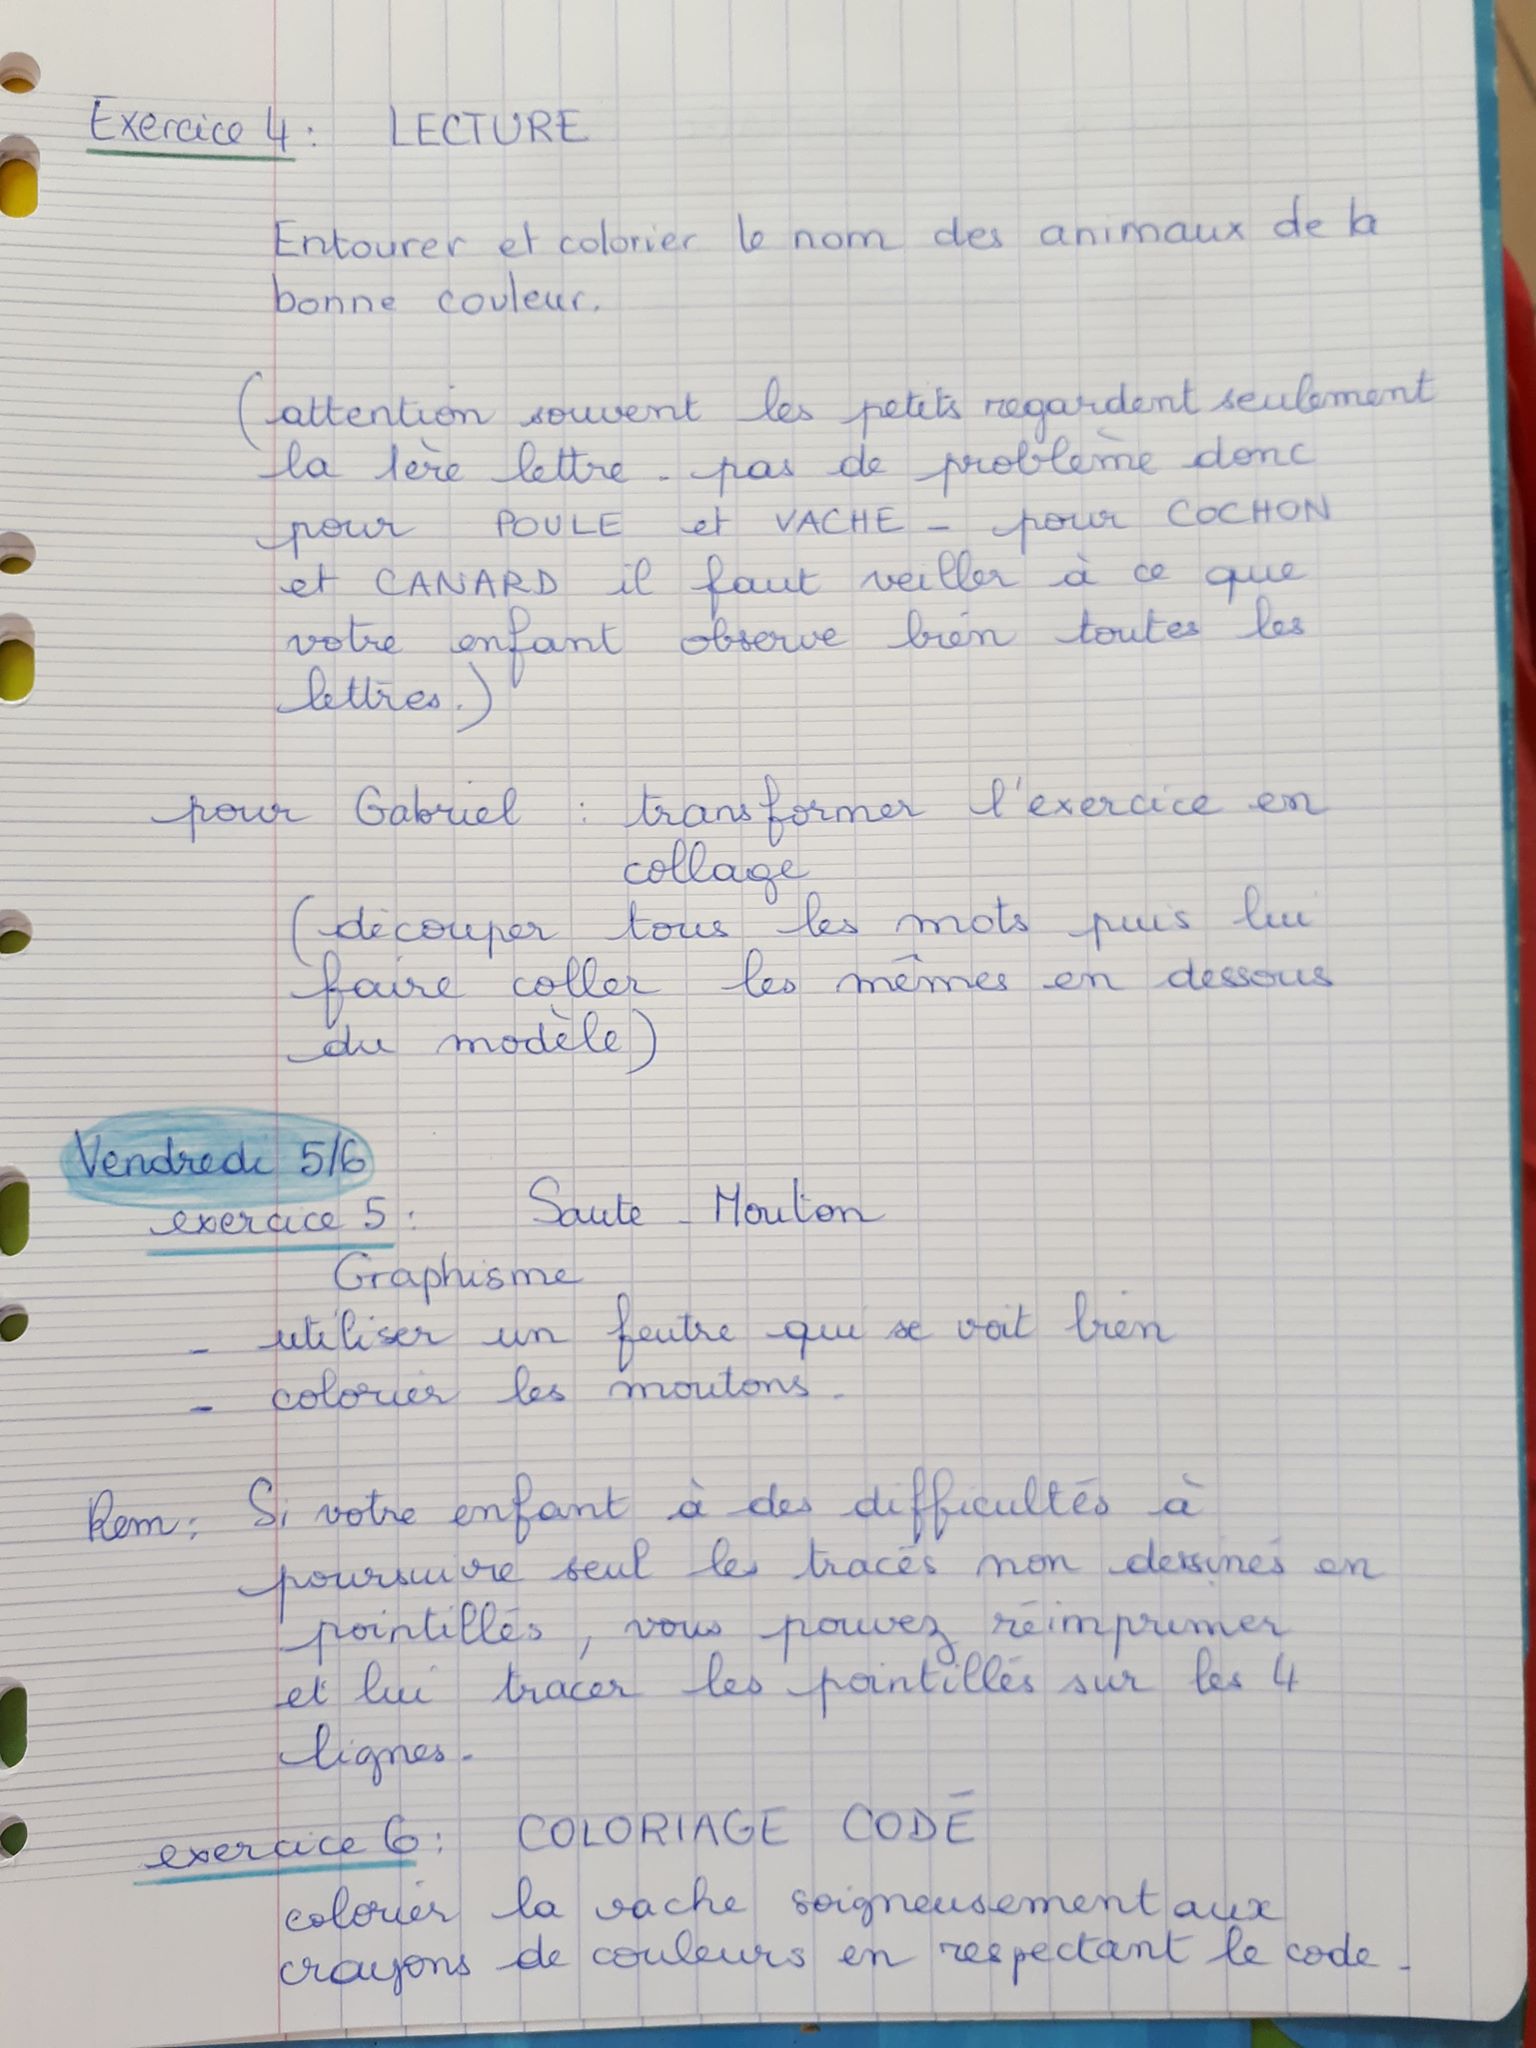 Exercice 4 : LECTURE
Entourer et colorier le nom des animaux de la
bonne couleur.
(attention souvent les petits regardent seulement
la 1ère lettre - pas de problème donc
pour POULE et VACHE - pour COCHON
et CANARD il faut veiller à ce que
votre enfant observe bien toutes les
lettres.)
pour Gabriel : transformer l'exercice en
collage
(découper tous les mots puis lui
faire coller les mêmes en dessous
du modèle)
Vendredi 5/6
exercice 5 : Saute - Mouton
Graphisme
- utiliser un feutre qui se voit bien
- colorier les moutons -
Rem : Si votre enfant à des difficultés à
poursuivre seul les tracés non dessinés en
pointillés, vous pouvez réimprimer
et lui tracer les pointillés sur les 4
lignes -
exercice 6 : COLORIAGE CODÉ
colorier la vache soigneusement aux
crayons de couleurs en respectant le code -